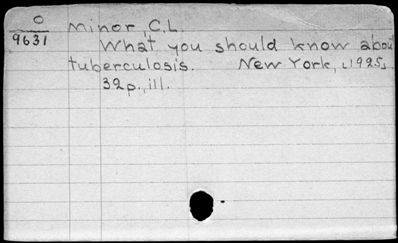 O Minor, C.L.
9631 What you should know about
tuberculosis. New York, [1925].
32p., ill.